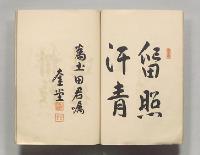 留照
汗青
為土田君嘱
奎堂